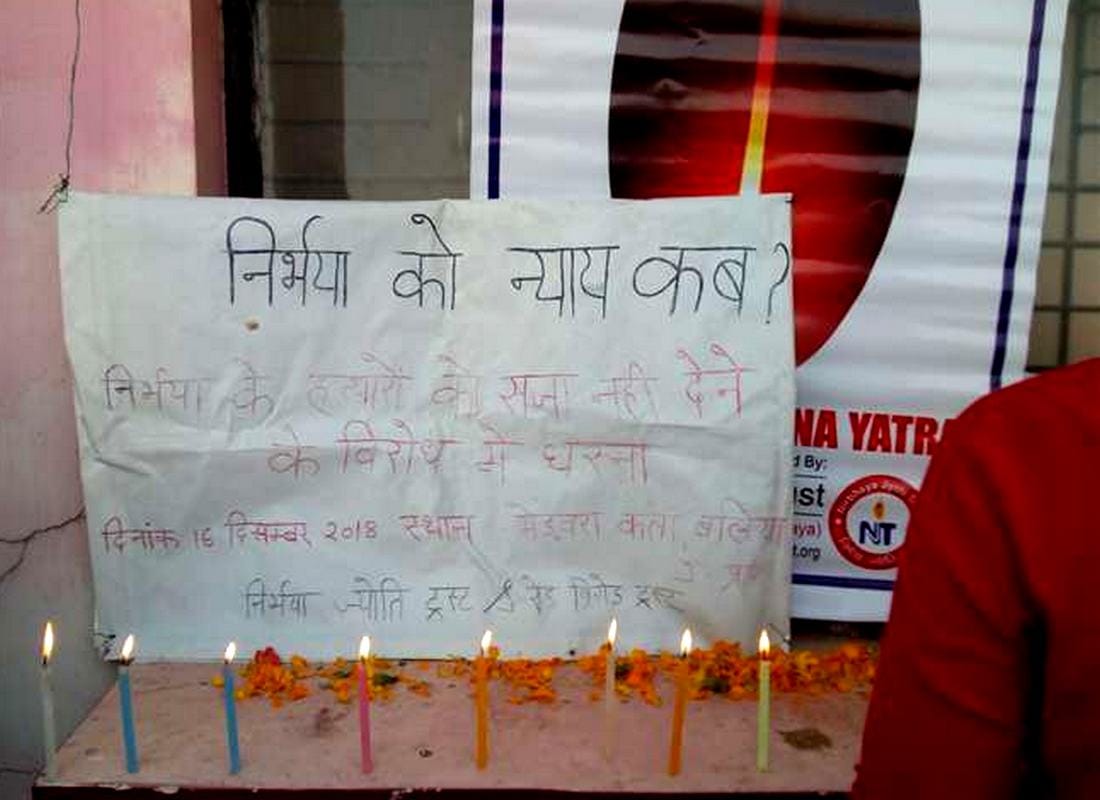 निर्भया को न्याय कब?
निर्भया के हत्यारों को सजा नही देने
के विरोध में धरना
दिनांक 16 दिसम्बर 2018 स्थान मेड़वरा कला बलिया
उ प्र
निर्भया ज्योति ट्रस्ट & रेड ब्रिगेड ट्रस्ट
NA YATRA
d By:
ust
aya)
t.org
Nirbhaya Jyoti
NT